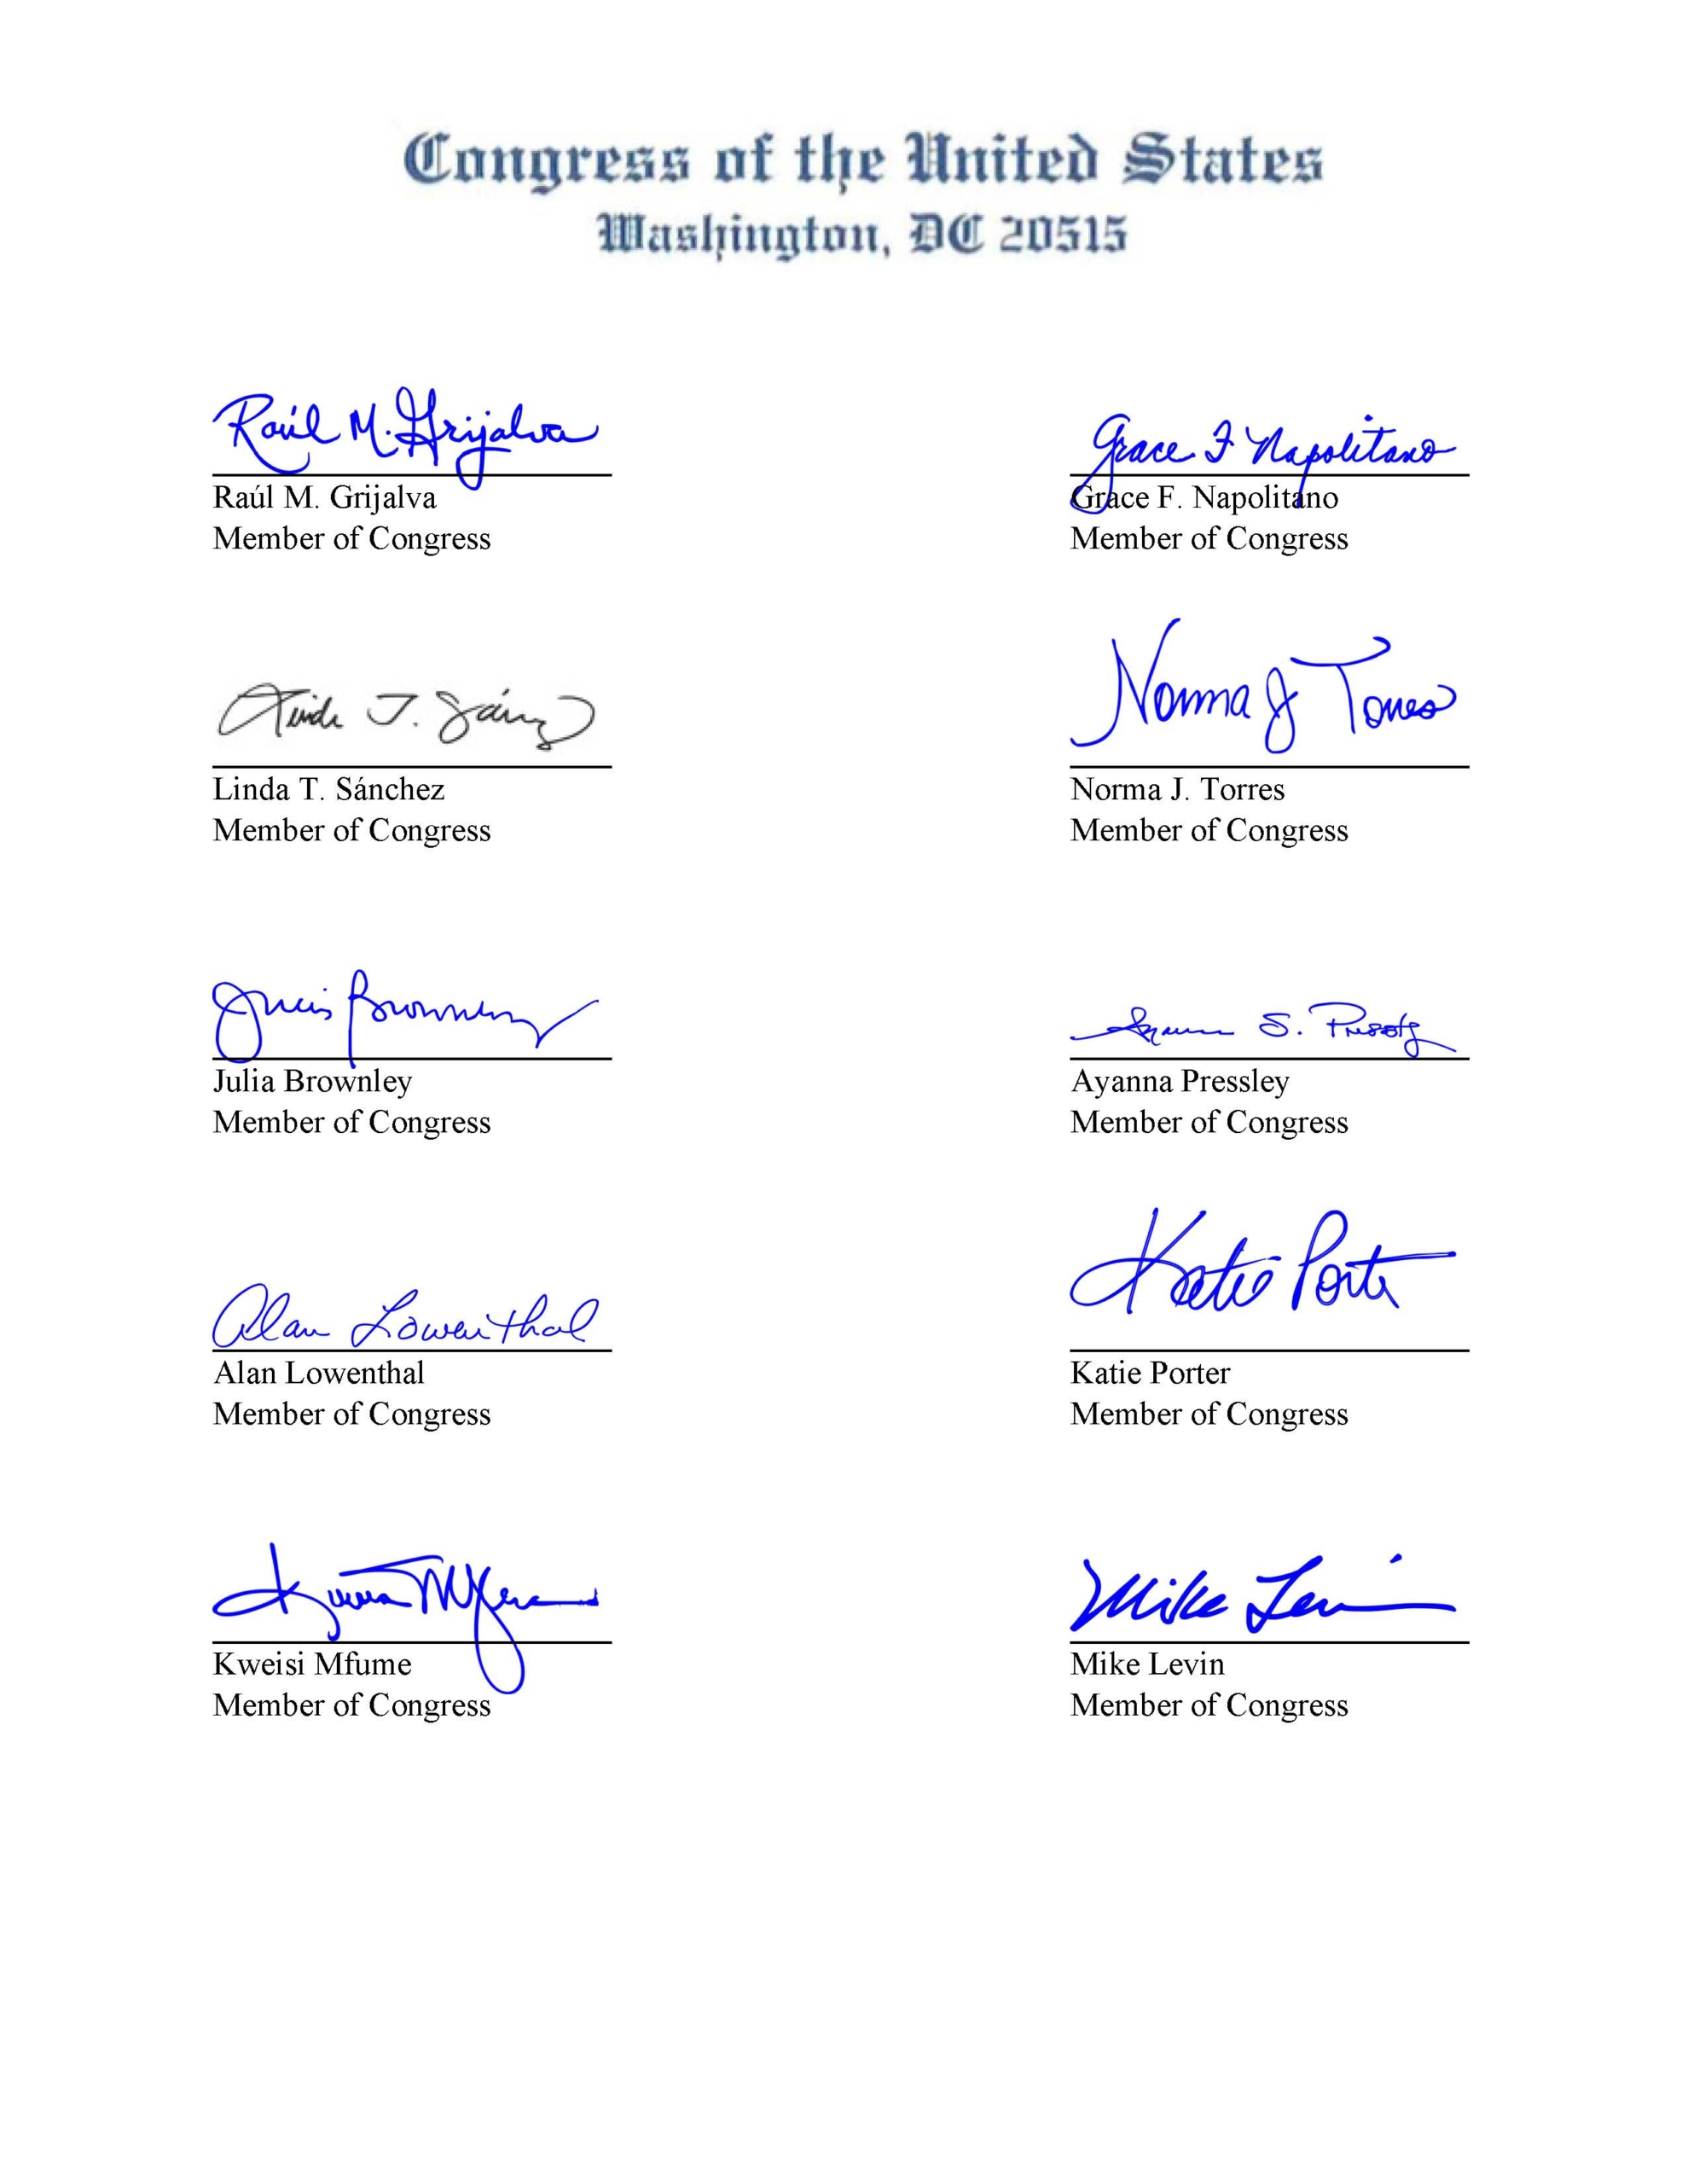 Congress of the United States
Washington, DC 20515
Raúl M. Grijalva
Grace F Napolitano
Raúl M. Grijalva
Member of Congress
Grace F. Napolitano
Member of Congress
Linda T. Sánchez
Norma J Torres
Linda T. Sánchez
Member of Congress
Norma J. Torres
Member of Congress
Julia Brownley
Ayanna S. Pressley
Julia Brownley
Member of Congress
Ayanna Pressley
Member of Congress
Alan Lowenthal
Katie Porter
Alan Lowenthal
Member of Congress
Katie Porter
Member of Congress
Kweisi Mfume
Mike Levin
Kweisi Mfume
Member of Congress
Mike Levin
Member of Congress